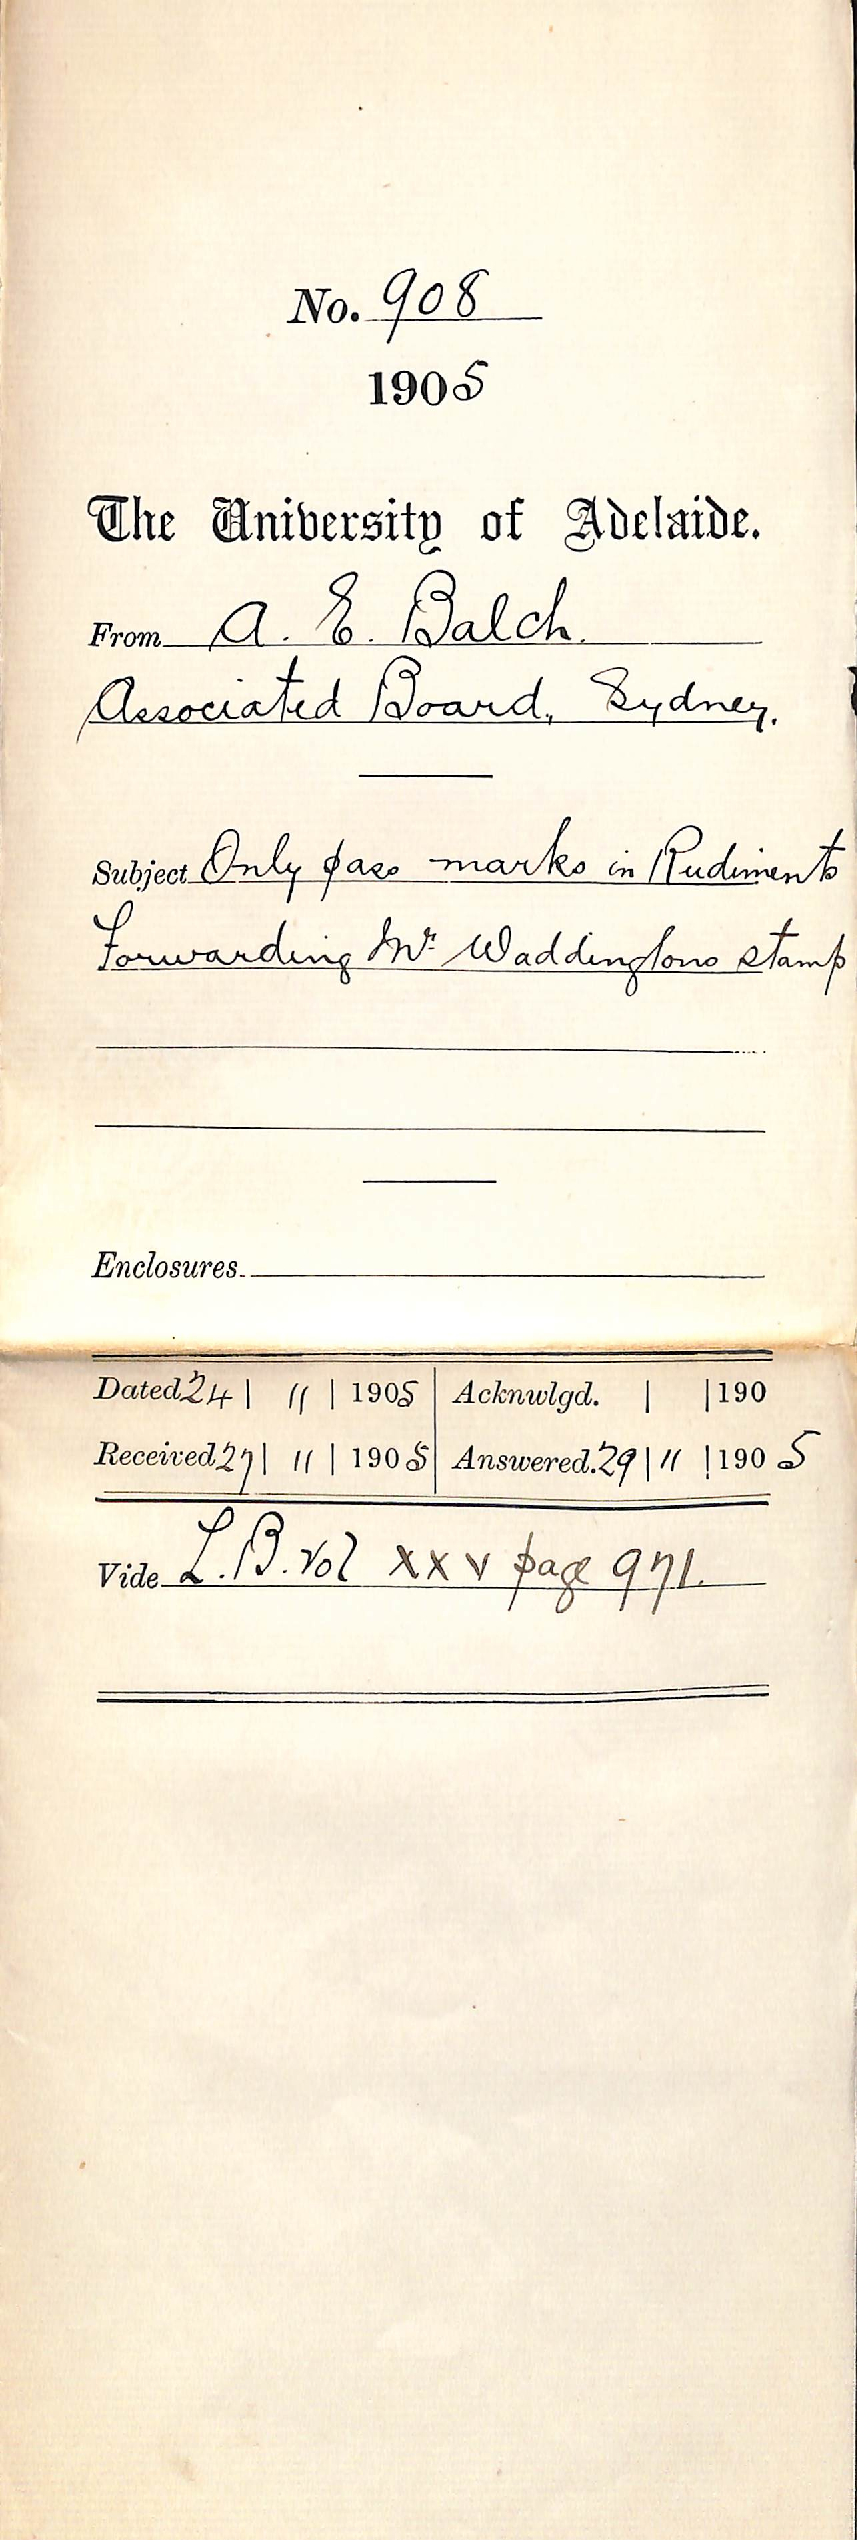 No. 908
1905
The University of Adelaide.
From A. E. Balch.
Associated Board, Sydney.
Subject Only pass marks in Rudiments
Forwarding Mr Waddingtons stamp
Enclosures.
Dated 24 | 11 | 1905 Acknwlgd. | | 190
Received 27 | 11 | 1905 Answered. 29 | 11 | 1905
Vide L.B. Vol XXV page 971.